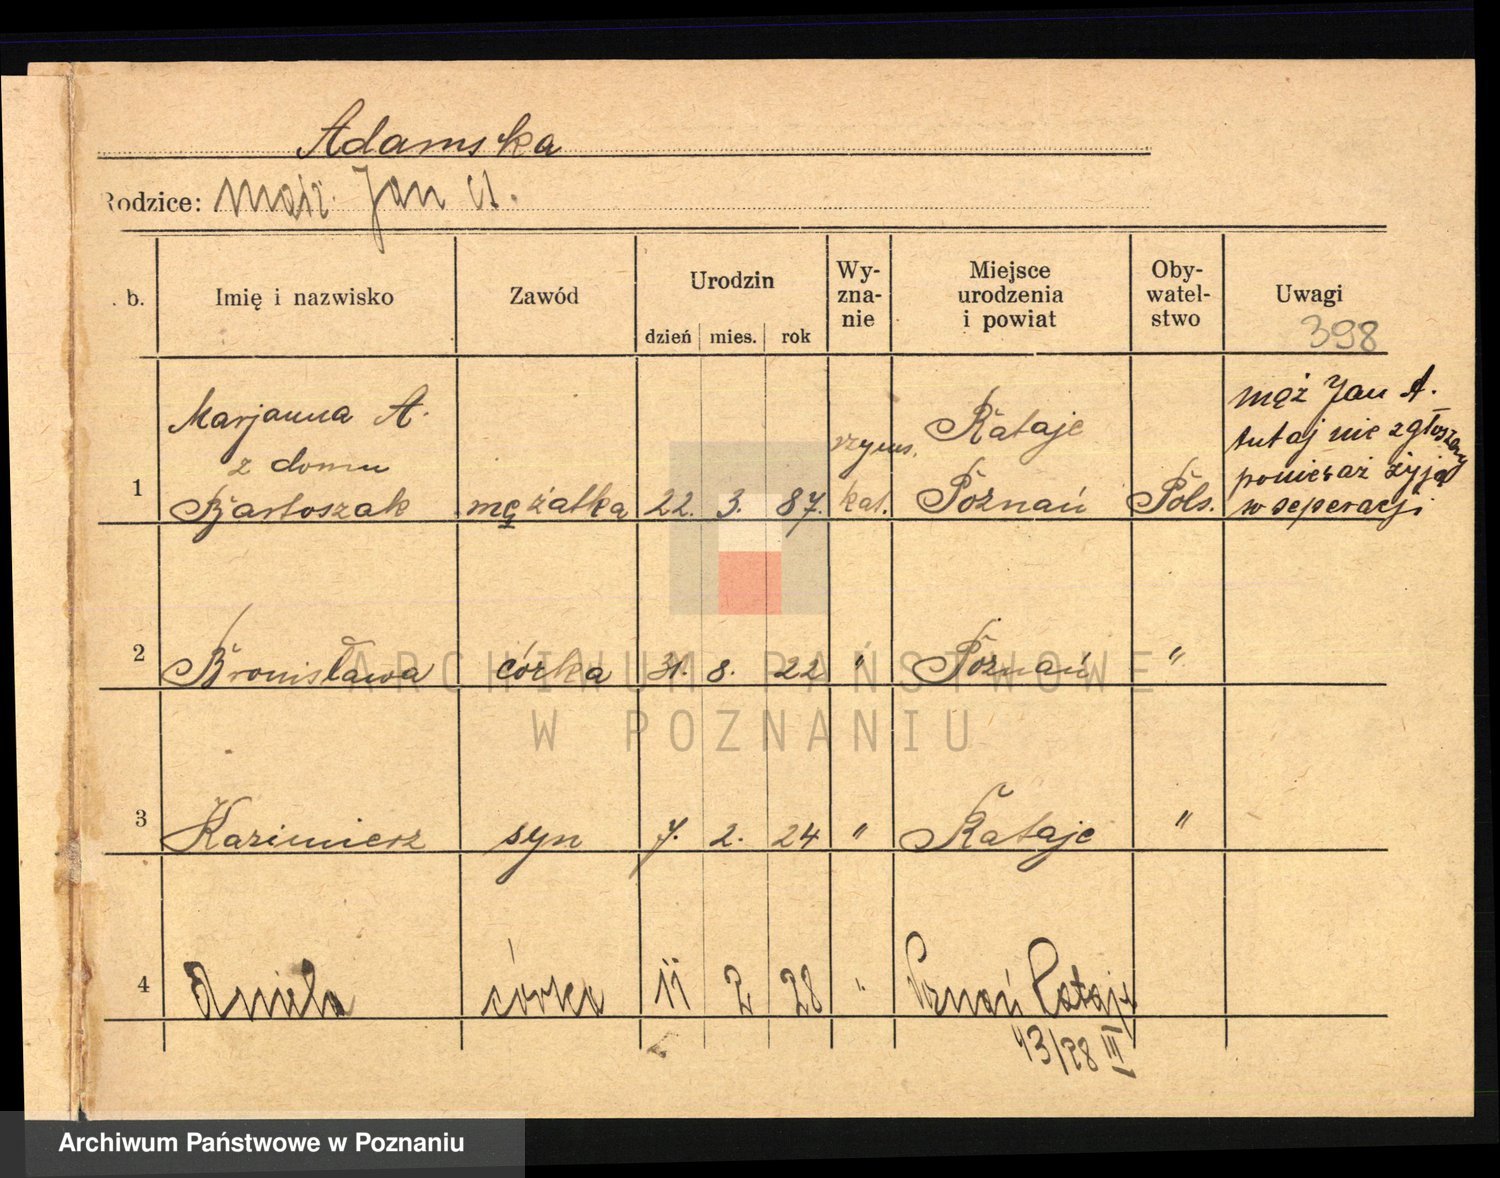 Adamska
Rodzice: mąż. Jan A.
. b.
Imię i nazwisko
Zawód
Urodzin
dzień mies. rok
Wy-
zna-
nie
Miejsce
urodzenia
i powiat
Oby-
watel-
stwo
Uwagi
398
1
Marjanna A.
z domu
Bartoszak
mężatka
22. 3. 87.
rzyms.
kat.
Rataje
Poznań
Pols.
mąż Jan A.
tutaj nie zgłoszony
ponieważ żyją
w seperacji
2 Bronisława córka 31. 8. 22 " Poznań "
3 Kazimierz syn 7. 2. 24 " Rataje "
4 Aniela córka 11 2 28 " Poznań Rataje
43/28 III
ARCHIWUM PAŃSTWOWE
W POZNANIU
Archiwum Państwowe w Poznaniu